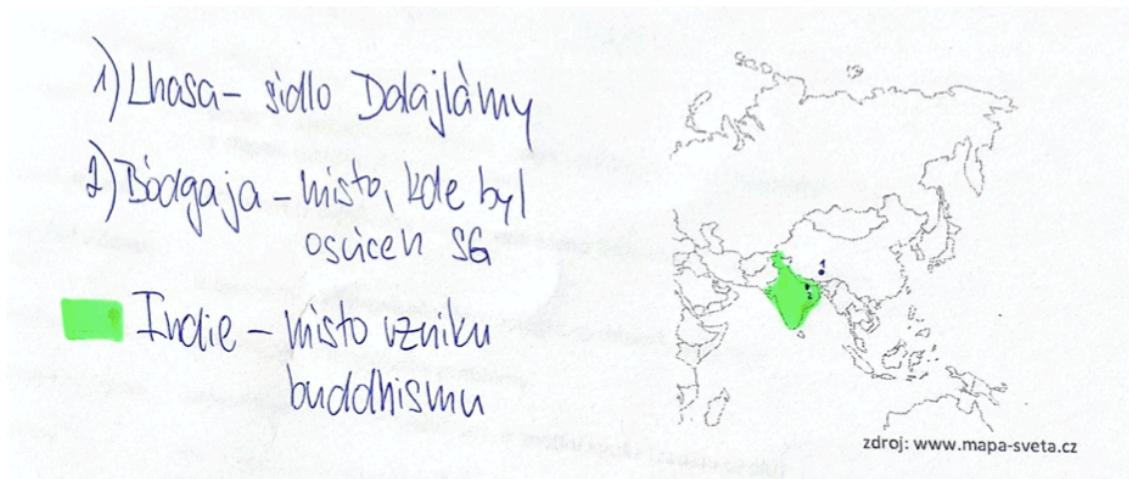 1) Lhasa – sídlo Dalajlámy
2) Bódgaja – místo, kde byl
osvícen SG
Indie – místo vzniku
buddhismu
1
2
zdroj: www.mapa-sveta.cz